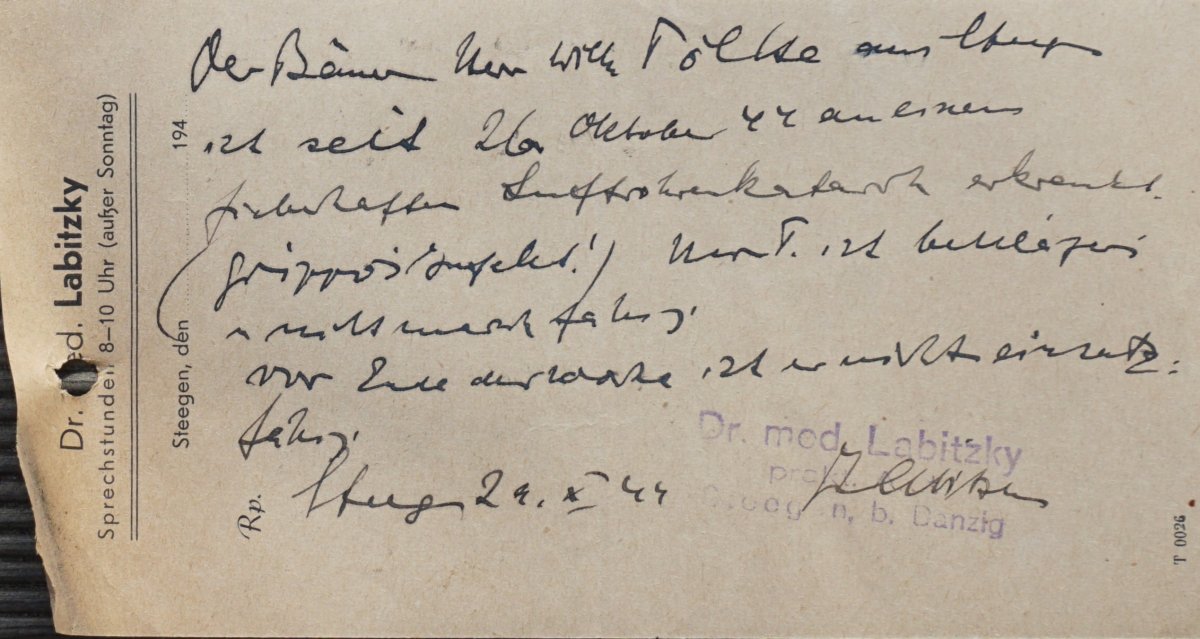 Dr. med. Labitzky
Sprechstunden 8–10 Uhr (außer Sonntag)
Steegen, den 194
Rp.
Der Bäcker Herr Willi Töltke aus Steegen
ist seit 26. Oktober 44 an einem
fieberhaften Luftröhrenkatarrh erkrankt.
(grippöser Infekt!) Herr T. ist bettlägerig
u nicht marschfähig.
vor Ende der Woche ist er nicht einsatz-
fähig.
Steegen 29. X 44
Dr. med. Labitzky
prakt.
Steegen, b. Danzig
T 0026